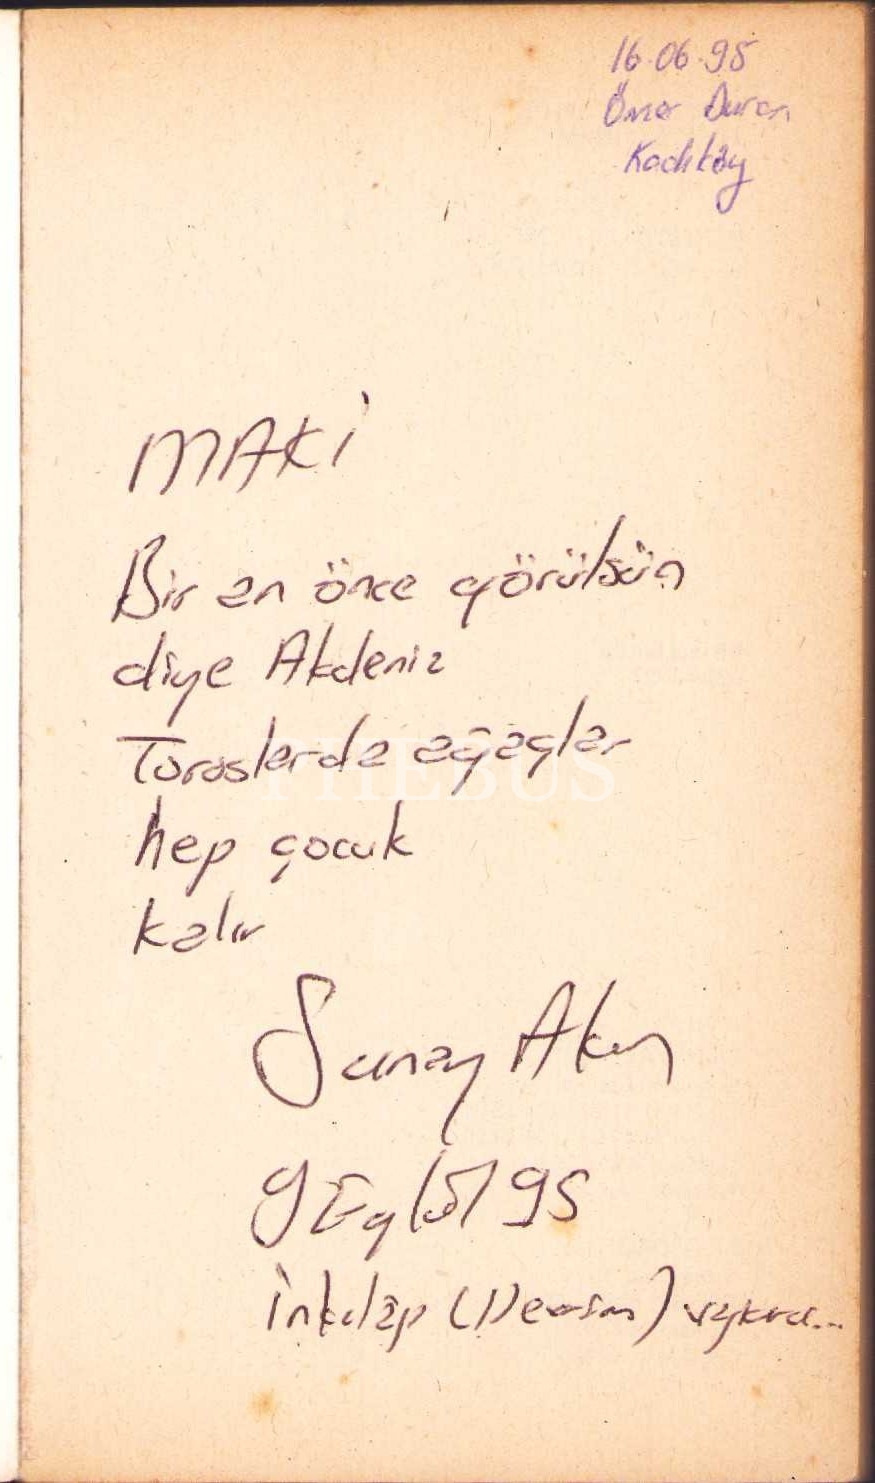 16.06.95
Ömer Duran
Kadıköy
MAKİ
Bir an önce görülsün
diye Akdeniz
Toroslarda ağaçlar
PHEBUS
hep çocuk
kalır
Sunay Akın
9 Eylül 95
İnkılap (Devrim)